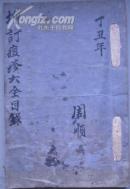 丁丑年
增訂痘疹大全目錄
周順